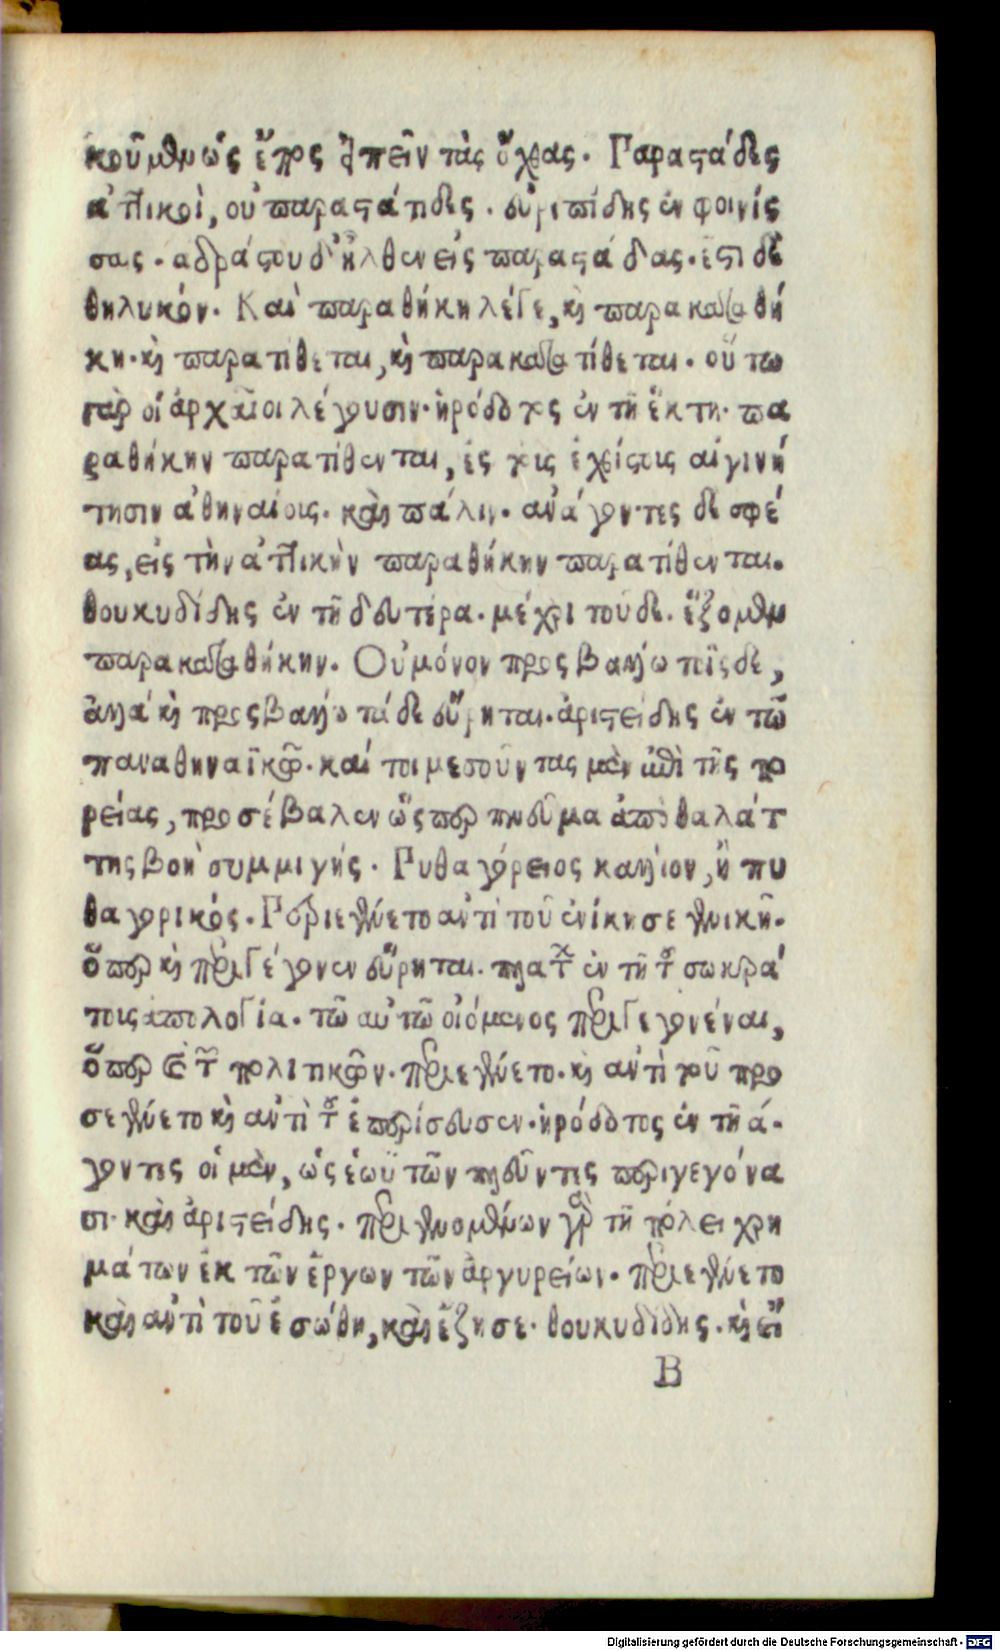 κρούμενως ἔπος εἰπεῖν τὰς ὄχθας. Παραστάδες
ἀττικοὶ, οὐ παραστάτιδες. εὐριπίδης ἐν φοινίσ
σαις. ἀδράστου δ' ἦλθεν εἰς παραστάδας. ἔστι δὲ
θηλυκόν. Καὶ παραθήκη λέγε, καὶ παρακαταθή
κη. καὶ παρατίθεται, καὶ παρακατατίθεται. οὕτω
γὰρ οἱ ἀρχαῖοι λέγουσιν. ἡρόδοτος ἐν τῆ ἕκτη. πα
ραθήκην παρατίθενται, ἐς τοὺς ἐχθίστους αἰγινή
τησιν ἀθηναίοις. καὶ πάλιν. ἀνάγοντες δὲ σφέ
ας, εἰς τὴν ἀττικὴν παραθήκην παρατίθενται.
θουκυδίδης ἐν τῆ δευτέρα. μέχρι τοῦδε. ἕξομεν
παρακαταθήκην. Οὐ μόνον προσβάλλω τοῖσδε,
ἀλλὰ καὶ προσβάλλω τάδε εὕρηται. ἀριστείδης ἐν τῶ
παναθηναϊκῶ. καί τοι μεσοῦντας μὲν ἐπὶ τῆς πο
ρείας, προσέβαλεν ὥσπερ πνεῦμα ἀπὸ θαλάτ
της βοὴ συμμιγής. Πυθαγόρειος κάλλιον, ἢ πυ
θαγορικός. Περιεγένετο ἀντὶ τοῦ ἐνίκησε γενικῆ.
ὅπερ καὶ περιγέγονεν εὕρηται. πλάτων ἐν τῆ τοῦ σωκρά
τους ἀπολογία. τῶ αὐτῶ οἰόμενος περιγεγονέναι,
ὅπερ καὶ τῶν πολιτικῶν. περιεγένετο. καὶ ἀντὶ τοῦ προ
σεγένετο καὶ ἀντὶ τοῦ ἐπερίσσευσεν. ἡρόδοτος ἐν τῆ ά.
γοντες οἱ μὲν, ὡς ἑωϋτῶν πλεῦντες περιγεγόνα
σι. καὶ ἀριστείδης. περιγενομένων γὰρ τῆ πόλει χρη
μάτων ἐκ τῶν ἔργων τῶν ἀργυρείων. περιεγένετο
καὶ ἀντὶ τοῦ ἐσώθη, καὶ ἔζησε. θουκυδίδης. καὶ εἴ
B
Digitalisierung gefördert durch die Deutsche Forschungsgemeinschaft - DFG